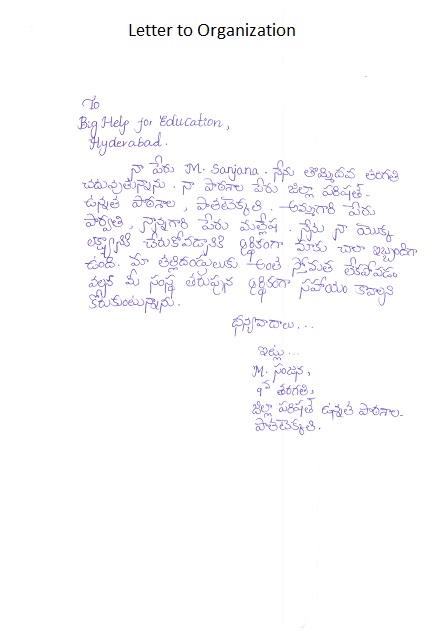 Letter to Organization
To
Big Help for Education,
Hyderabad.
నా పేరు M. Sanjana. నేను తొమ్మిదవ తరగతి
చదువుతున్నాను. నా పాఠశాల పేరు జిల్లా పరిషత్-
ఉన్నత పాఠశాల, పాతటెక్కతి. అమ్మగారి పేరు
పార్వతి, నాన్నగారి పేరు మల్లేష. నేను నా యొక్క
లక్ష్యానికి చేరుకోవడానికి ఆర్థికంగా మాకు చాలా ఇబ్బందిగా
ఉంది. మా తల్లిదండ్రులుకు అంత స్తోమత లేకపోవడం
వల్లన మీ సంస్థ తరుపున ఆర్థికంగా సహాయం కావాలని
కోరుకుంటున్నాను.
ధన్యవాదాలు...
ఇట్లు...
M. సంజన,
9వ తరగతి,
జిల్లా పరిషత్ ఉన్నత పాఠశాల-
పాతటెక్కతి.